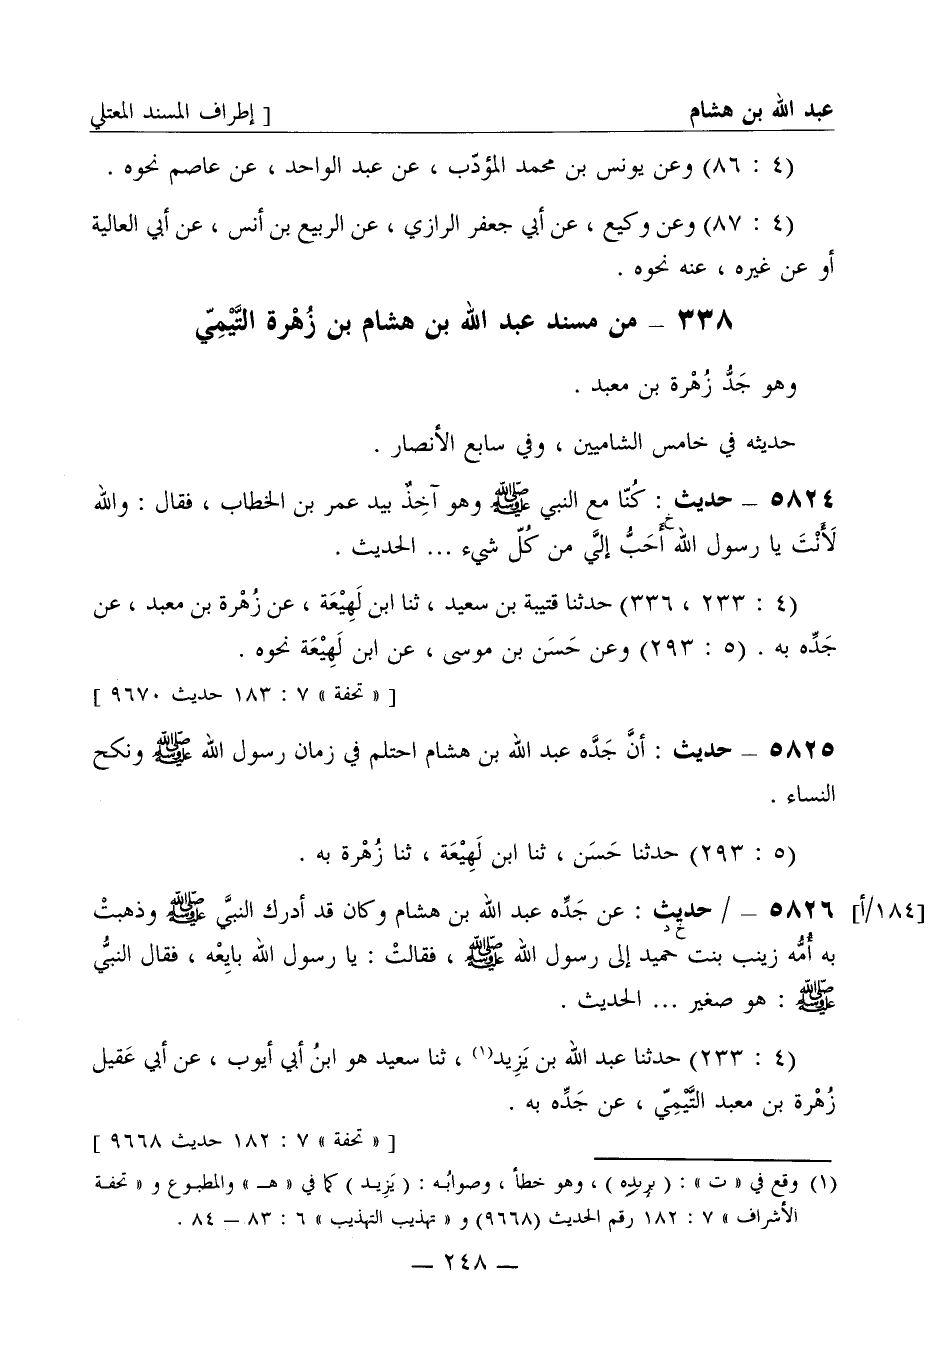 عبد الله بن هشام [ إطراف المسند المعتلي
(٤ : ٨٦) وعن يونس بن محمد المؤدّب ، عن عبد الواحد ، عن عاصم نحوه .
(٤ : ٨٧) وعن وكيع ، عن أبي جعفر الرازي ، عن الربيع بن أنس ، عن أبي العالية
أو عن غيره ، عنه نحوه .
٣٣٨ – من مسند عبد الله بن هشام بن زُهْرة التَّيْمِيّ
وهو جَدُّ زُهْرة بن معبد .
حديثه في خامس الشاميين ، وفي سابع الأنصار .
٥٨٢٤ – حديث : كُنّا مع النبي ﷺ وهو آخِذٌ بيد عمر بن الخطاب ، فقال : والله
لَأَنْتَ يا رسول الله أَحَبُّ إليَّ من كُلّ شيء ... الحديث .
(٤ : ٢٣٣ ، ٣٣٦) حدثنا قتيبة بن سعيد ، ثنا ابن لَهِيْعَة ، عن زُهْرة بن معبد ، عن
جَدِّه به . (٥ : ٢٩٣) وعن حَسَن بن موسى ، عن ابن لَهِيْعَة نحوه .
[ « تحفة » ٧ : ١٨٣ حديث ٩٦٧٠ ]
٥٨٢٥ – حديث : أنَّ جَدَّه عبد الله بن هشام احتلم في زمان رسول الله ﷺ ونكح
النساء .
(٥ : ٢٩٣) حدثنا حَسَن ، ثنا ابن لَهِيْعَة ، ثنا زُهْرة به .
[١٨٤/أ] ٥٨٢٦ – / حديث : عن جَدِّه عبد الله بن هشام وكان قد أدرك النبيَّ ﷺ وذهبتْ
به أُمُّه زينب بنت حميد إلى رسول الله ﷺ ، فقالتْ : يا رسول الله بايِعْه ، فقال النبيُّ
ﷺ : هو صغير ... الحديث .
(٤ : ٢٣٣) حدثنا عبد الله بن يَزِيد(١) ، ثنا سعيد هو ابنُ أبي أيوب ، عن أبي عَقيل
زُهْرة بن معبد التَّيْمِيّ ، عن جَدِّه به .
[ « تحفة » ٧ : ١٨٢ حديث ٩٦٦٨ ]
(١) وقع في « ت » : ( بريده ) ، وهو خطأ ، وصوابُه : ( يَزِيد ) كما في « هـ » والمطبوع و « تحفة
الأشراف » ٧ : ١٨٢ رقم الحديث (٩٦٦٨) و « تهذيب التهذيب » ٦ : ٨٣ – ٨٤ .
– ٢٤٨ –